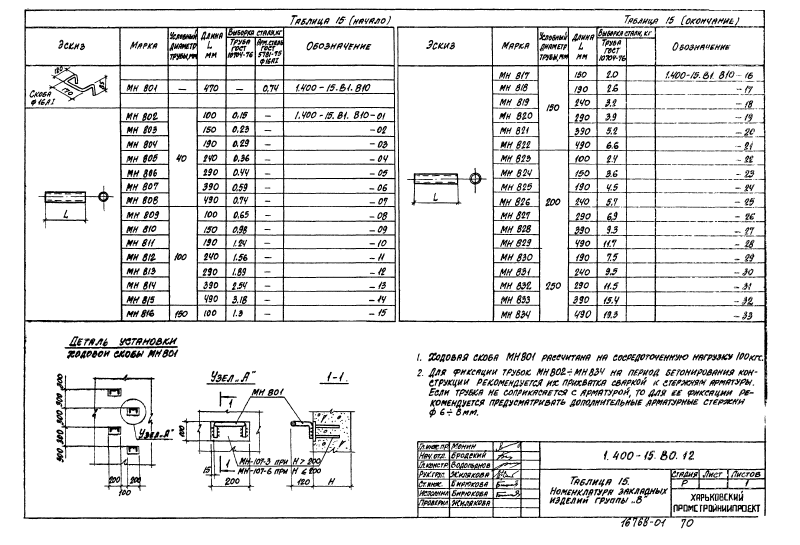 Таблица 15 (начало)
Эскиз | Марка | Условный диаметр трубы, мм | Длина L мм | Выборка стали, кг | Обозначение
Труба ГОСТ 10704-76 | Арм. сталь ГОСТ 5781-75 Ф16АI
Скоба Ф16АI
МН 801 | — | 470 | — | 0,74 | 1.400-15.В1.В10
МН 802 | 40 | 100 | 0,15 | — | 1.400-15.В1.В10-01
МН 803 | 150 | 0,23 | — | -02
МН 804 | 190 | 0,29 | — | -03
МН 805 | 240 | 0,36 | — | -04
МН 806 | 290 | 0,44 | — | -05
МН 807 | 390 | 0,59 | — | -06
МН 808 | 490 | 0,74 | — | -07
L
МН 809 | 100 | 100 | 0,65 | — | -08
МН 810 | 150 | 0,98 | — | -09
МН 811 | 190 | 1.24 | — | -10
МН 812 | 240 | 1.56 | — | -11
МН 813 | 290 | 1.89 | — | -12
МН 814 | 390 | 2.54 | — | -13
МН 815 | 490 | 3.18 | — | -14
МН 816 | 150 | 100 | 1.3 | — | -15
Таблица 15 (окончание)
Эскиз | Марка | Условный диаметр трубы, мм | Длина L мм | Выборка стали, кг | Обозначение
Труба ГОСТ 10704-76
МН 817 | 150 | 150 | 2.0 | 1.400-15.В1.В10-16
МН 818 | 190 | 2.6 | -17
МН 819 | 240 | 3.2 | -18
МН 820 | 290 | 3.9 | -19
МН 821 | 390 | 5.2 | -20
МН 822 | 490 | 6.6 | -21
МН 823 | 200 | 100 | 2.4 | -22
МН 824 | 150 | 3.6 | -23
МН 825 | 190 | 4.5 | -24
L
МН 826 | 240 | 5.7 | -25
МН 827 | 290 | 6.9 | -26
МН 828 | 390 | 9.3 | -27
МН 829 | 490 | 11.7 | -28
МН 830 | 250 | 190 | 7.5 | -29
МН 831 | 240 | 9.5 | -30
МН 832 | 290 | 11.5 | -31
МН 833 | 390 | 15.4 | -32
МН 834 | 490 | 19.3 | -33
Деталь установки
ходовой скобы МН801
300
300
300
300
Узел „А"
200 200
100
Узел „А"
МН 801
1
1
100
МН-107-3 при Н > 200
МН-107-6 при Н ≤ 200
15
200
1-1
120
Н
1. Ходовая скоба МН801 рассчитана на сосредоточенную нагрузку 100кгс.
2. Для фиксации трубок МН802÷МН834 на период бетонирования кон-
струкции рекомендуется их прихватка сваркой к стержням арматуры.
Если трубка не соприкасается с арматурой, то для ее фиксации ре-
комендуется предусматривать дополнительные арматурные стержни
ф 6÷8мм.
Гл.инж.пр. Монин
Нач.отд. Бродский
Гл.констр. Водольянов
Рук.груп. Жилякова
Ст.инж. Бирюкова
Исполнил Бирюкова
Проверил Жилякова
1.400-15.В0.12
Таблица 15.
Номенклатура закладных
изделий группы „8"
Стадия Лист Листов
Р 1
Харьковский
Промстройниипроект
16768-01 70